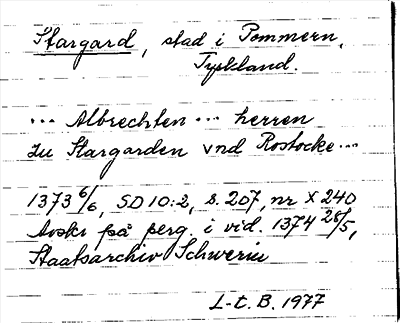 Stargard, stad i Pommern,
Tyskland.
... Albrechten ... herren
zu Stargarden vnd Rostocke ...
1373 6/6, SD 10:2, s. 207, nr X 240
Avskr på perg. i vid. 1374 28/5,
Staatsarchiv Schwerin
L-t. B. 1977